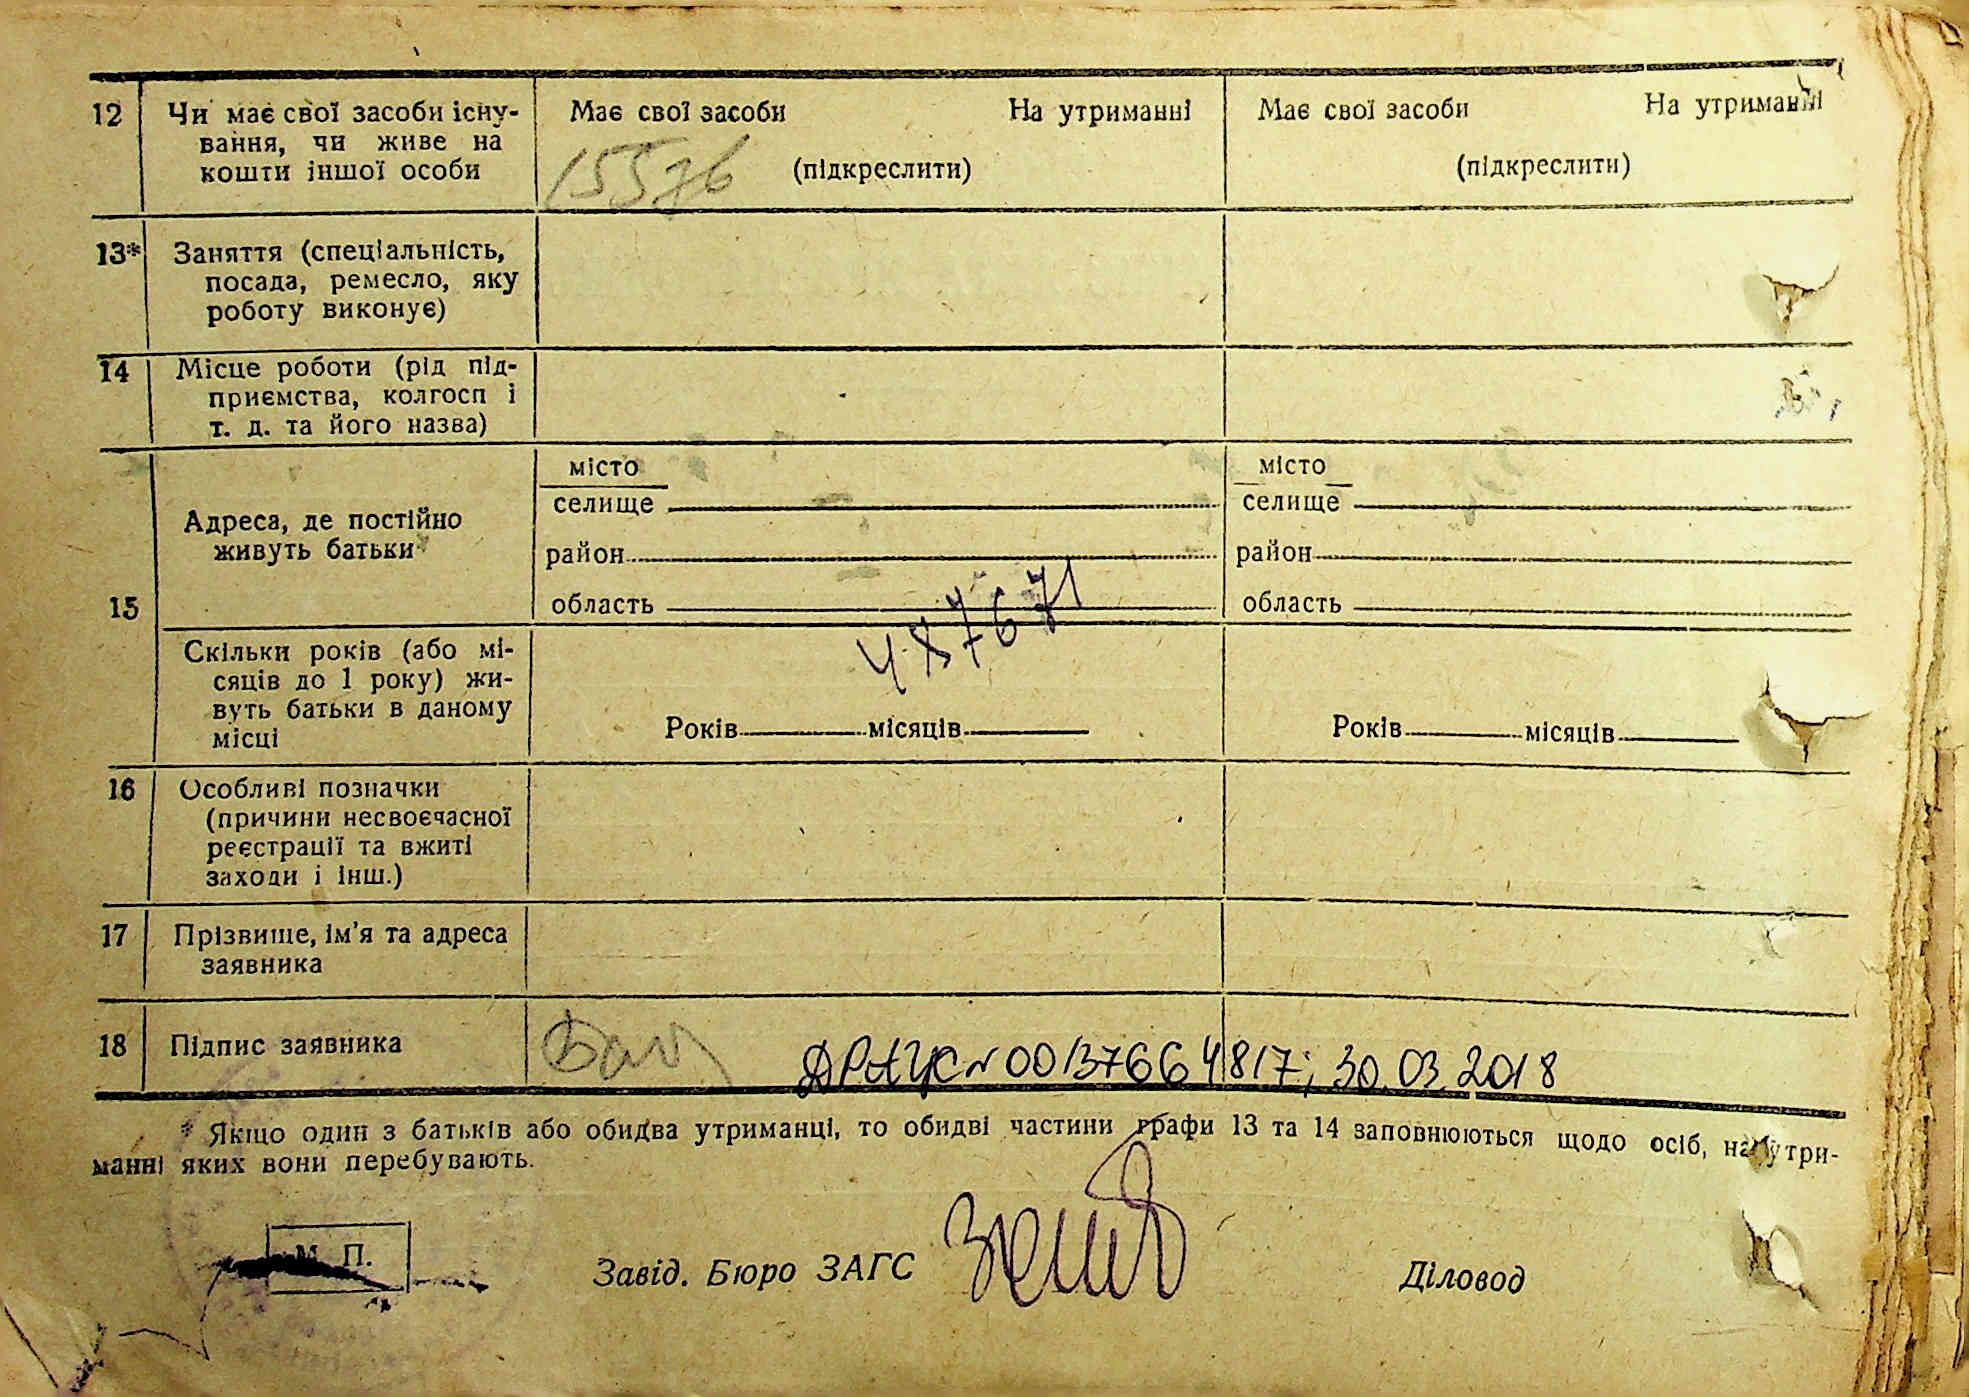 12 Чи має свої засоби існу-
вання, чи живе на
кошти іншої особи
Має свої засоби На утриманні
15576 (підкреслити)
Має свої засоби На утриманні
(підкреслити)
13* Заняття (спеціальність,
посада, ремесло, яку
роботу виконує)
14 Місце роботи (рід під-
приємства, колгосп і
т. д. та його назва)
15 Адреса, де постійно
живуть батьки
місто
селище
район
область
місто
селище
район
область
487671
Скільки років (або мі-
сяців до 1 року) жи-
вуть батьки в даному
місці
Років місяців
Років місяців
16 Особливі позначки
(причини несвоєчасної
реєстрації та вжиті
заходи і інш.)
17 Прізвище, ім'я та адреса
заявника
18 Підпис заявника
ДРАЦС № 00137664817; 30.03.2018
* Якщо один з батьків або обидва утриманці, то обидві частини графи 13 та 14 заповнюються щодо осіб, на утри-
манні яких вони перебувають.
М. П.
Завід. Бюро ЗАГС
Діловод